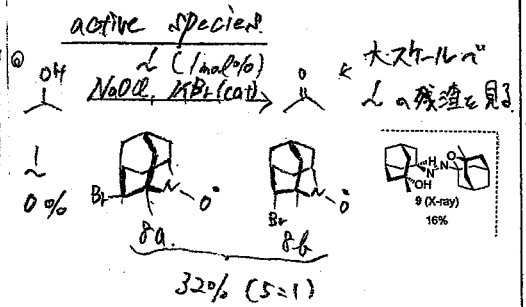 active species.
OH
~ (1mol%)
NaOCl, KBr (cat)
O
大スケールで
~の残渣を見る.
~
0%
Br
N-O•
8a.
Br
N-O•
8b
32% (5=1)
H
N-N
O
OH
9 (X-ray)
16%